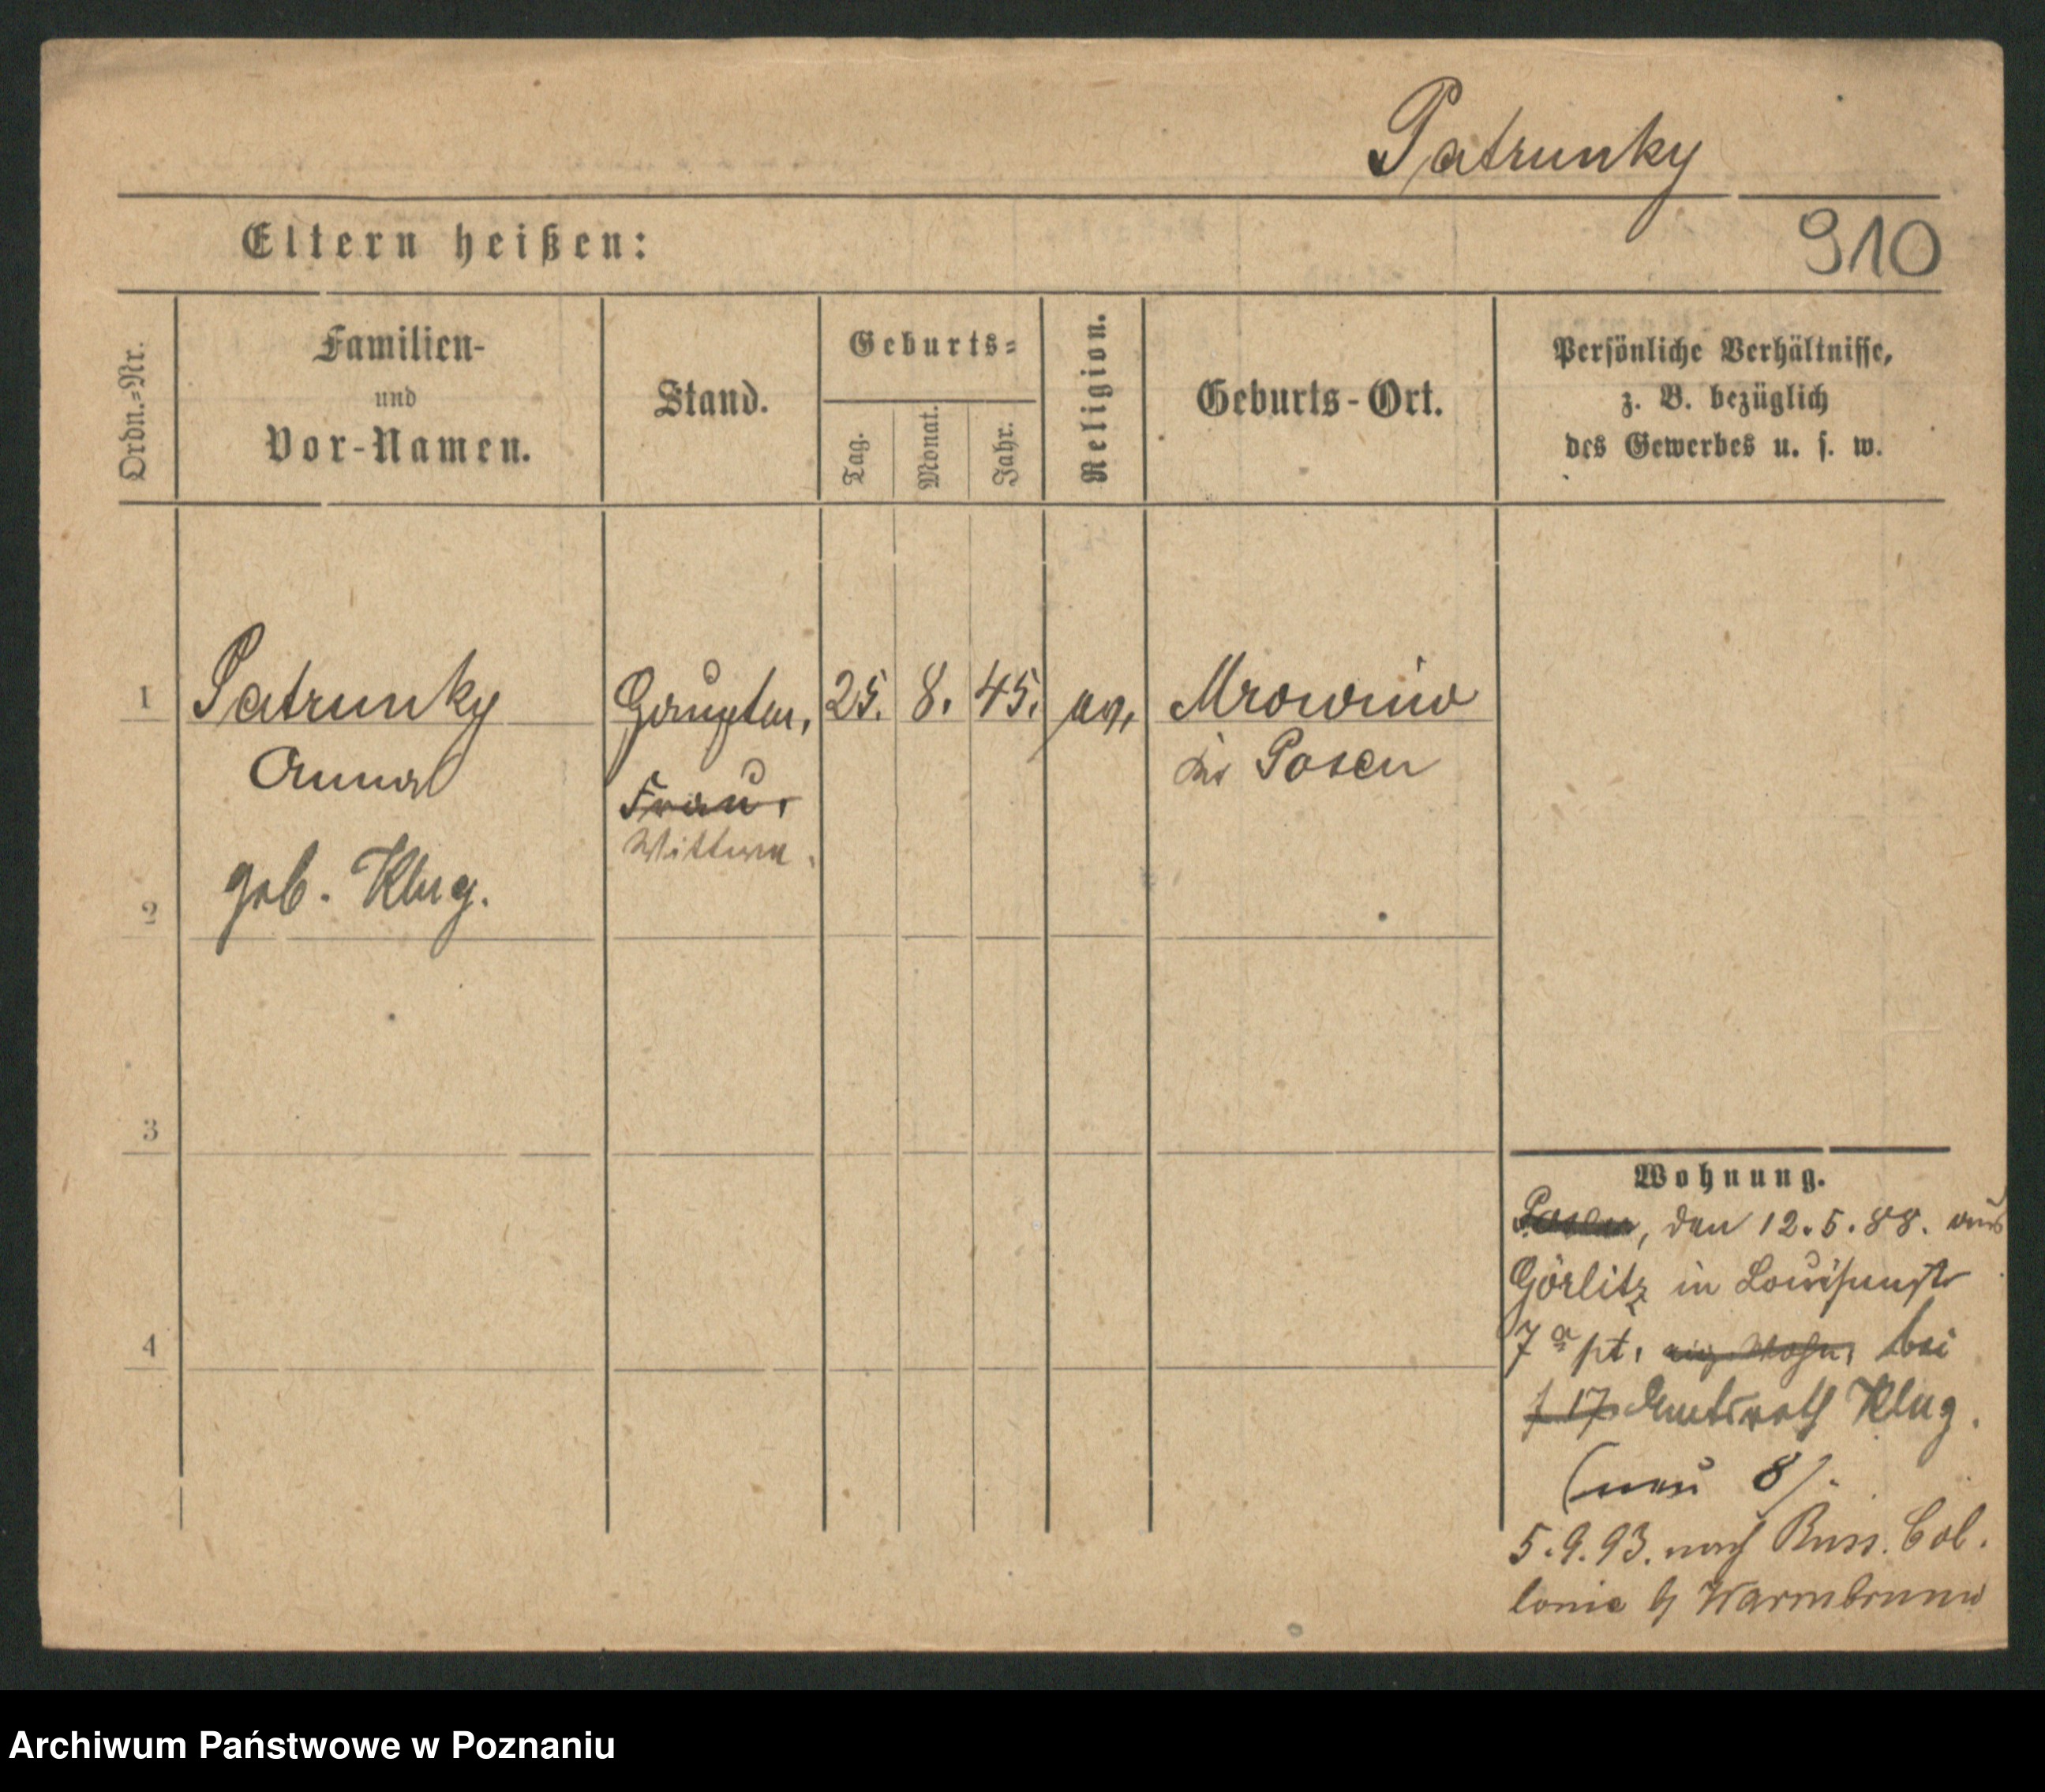 Patrunky
Eltern heißen:
910
Ordn.=Nr.
Familien-
und
Vor-Namen.
Stand.
Geburts=
Tag.
Monat.
Jahr.
Religion.
Geburts-Ort.
Persönliche Verhältnisse,
z. B. bezüglich
des Gewerbes u. s. w.
1 Patrunky 25. 8. 45. ev. Mrowino
Anna
Posen
Frau.
Wittwe.
2 geb. Klug.
3
4
Wohnung.
Posen, den 12.5.88. aus
Görlitz in Louisenstr
7a pt. eig. Wohn. bei
f 17 Amtsrath Klug.
(neu 8).
5.9.93. nach Russ. Col.
lonie b/ Warmbrunn
Archiwum Państwowe w Poznaniu